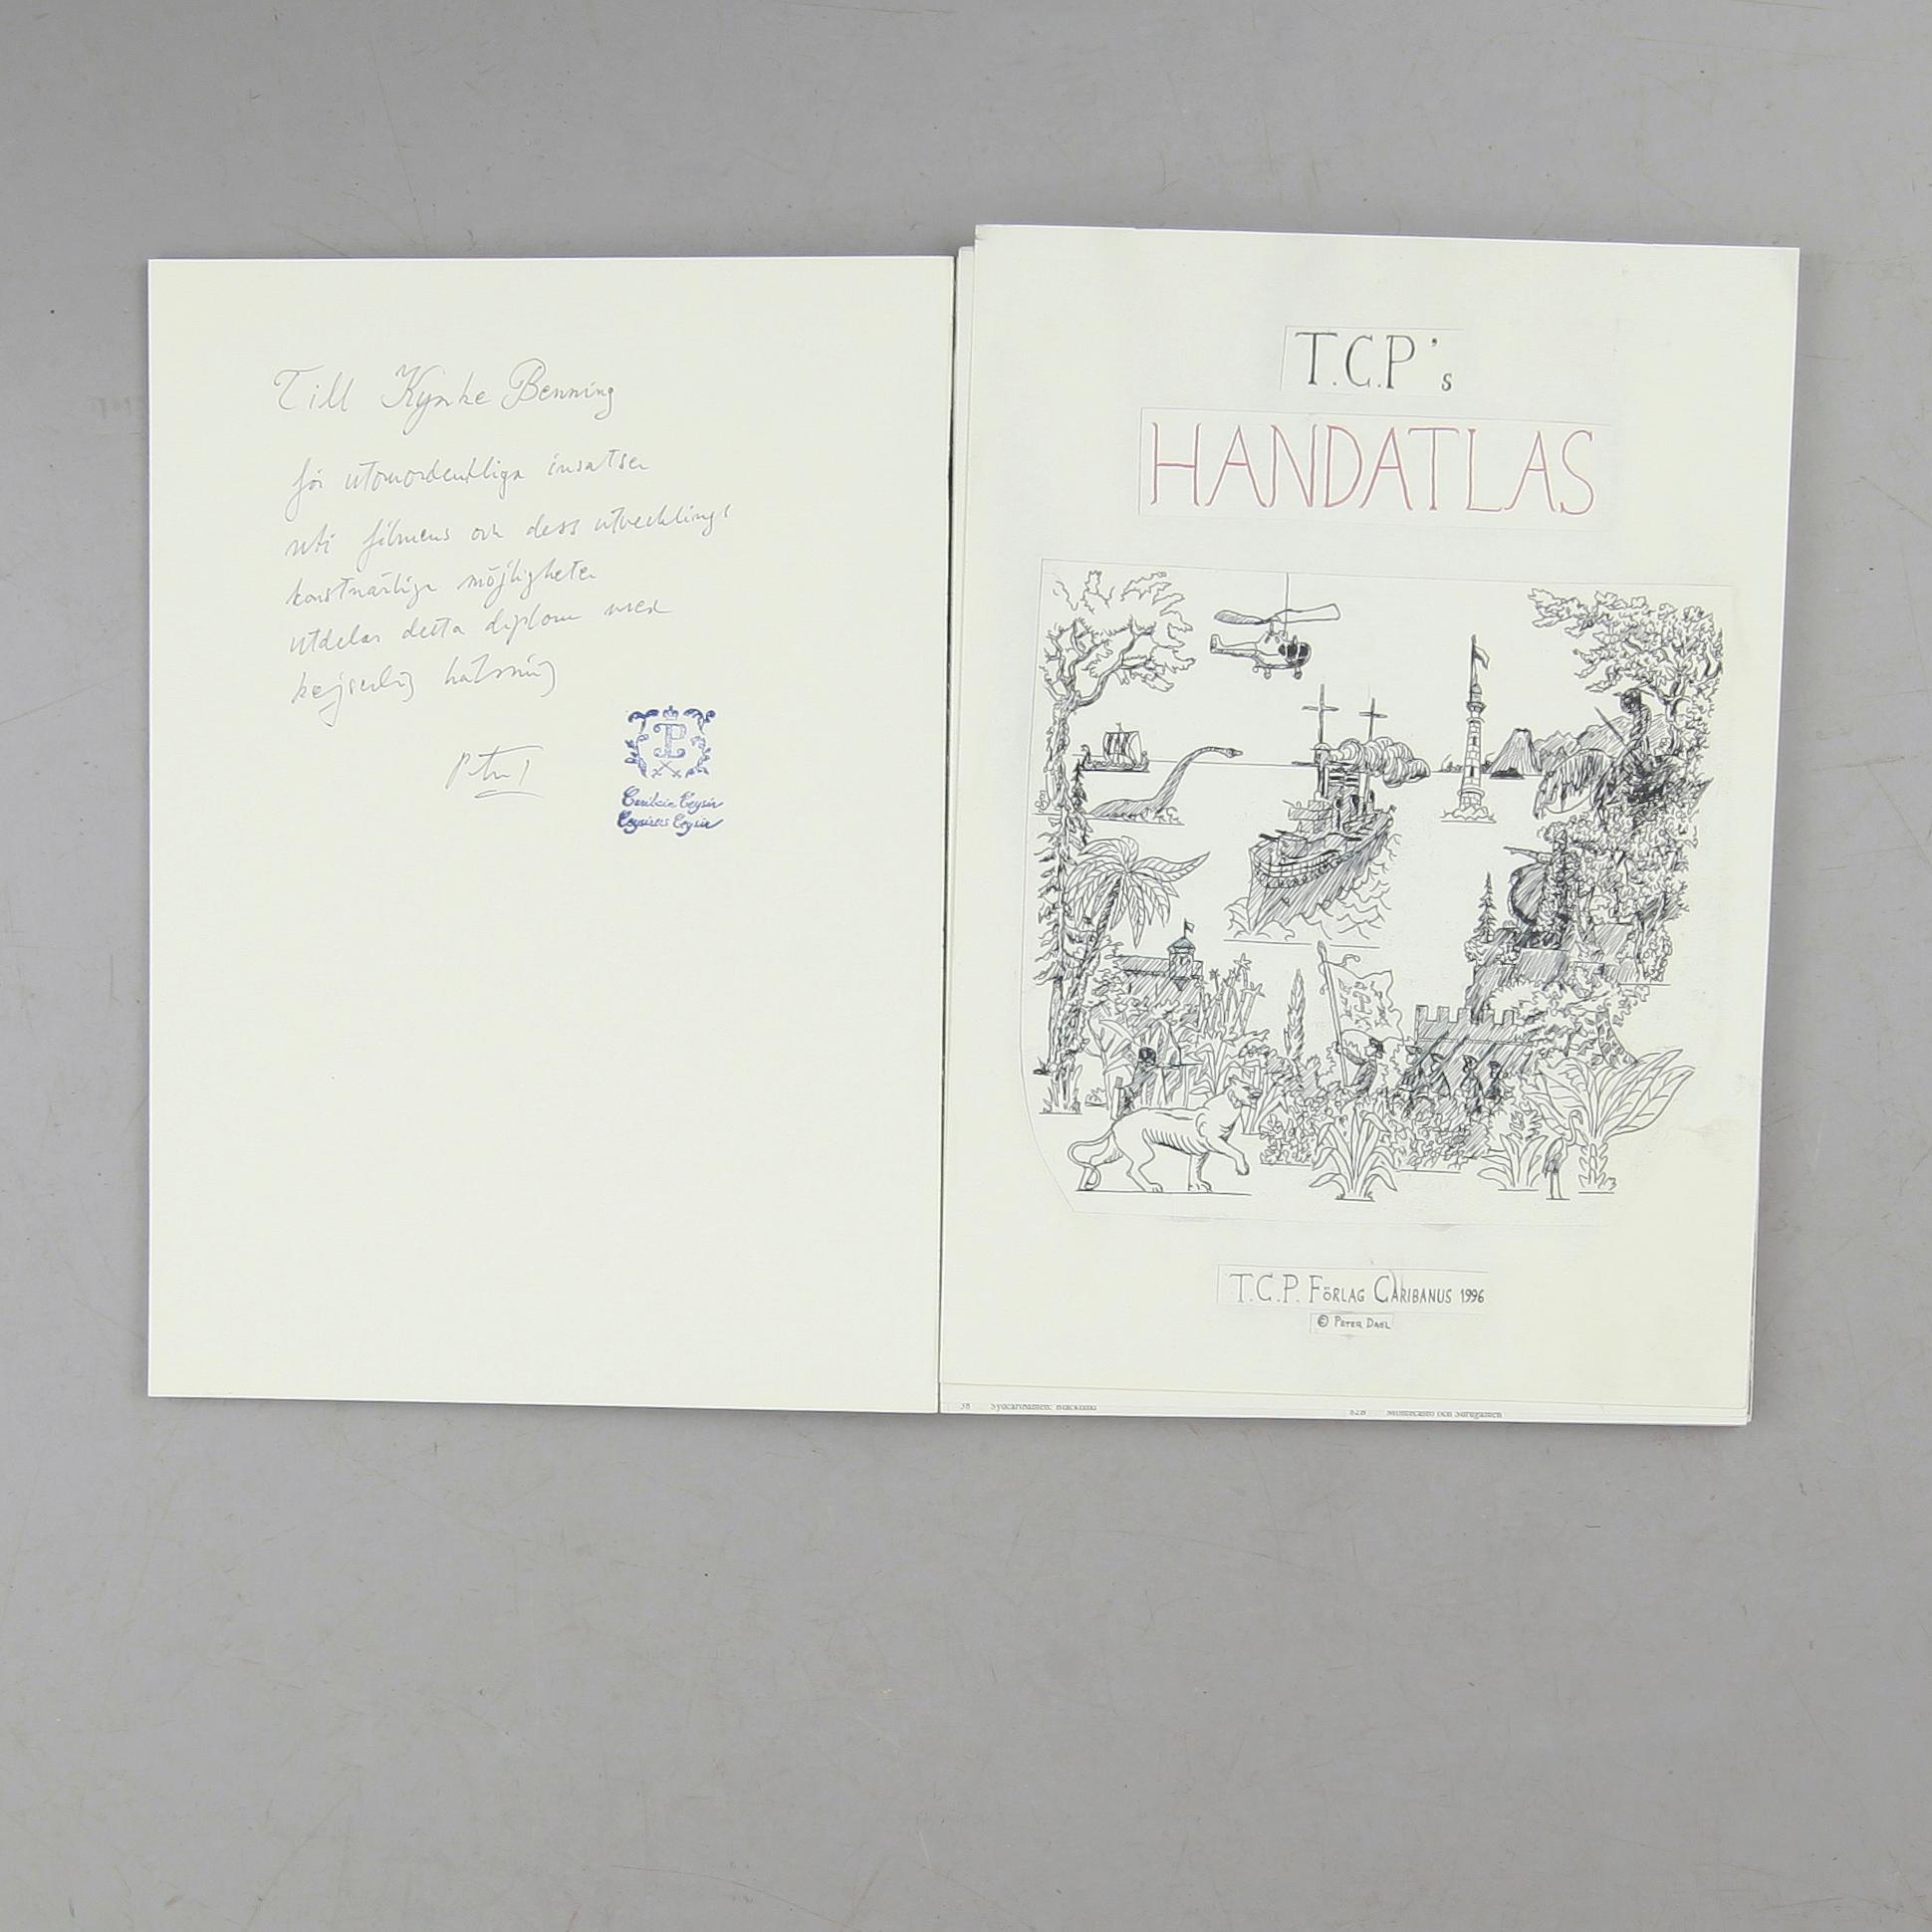 Till Kynke Benning
för utomordentliga insatser
uti filmens och dess utvecklings
konstnärliga möjligheter
utdelas detta diplom med
kejserlig hälsning
Peter
T.C.P's
HANDATLAS
T.C.P. FÖRLAG CARIBANUS 1996
© PETER DAHL
38 Sydcaribanien:
82B Montecasto och